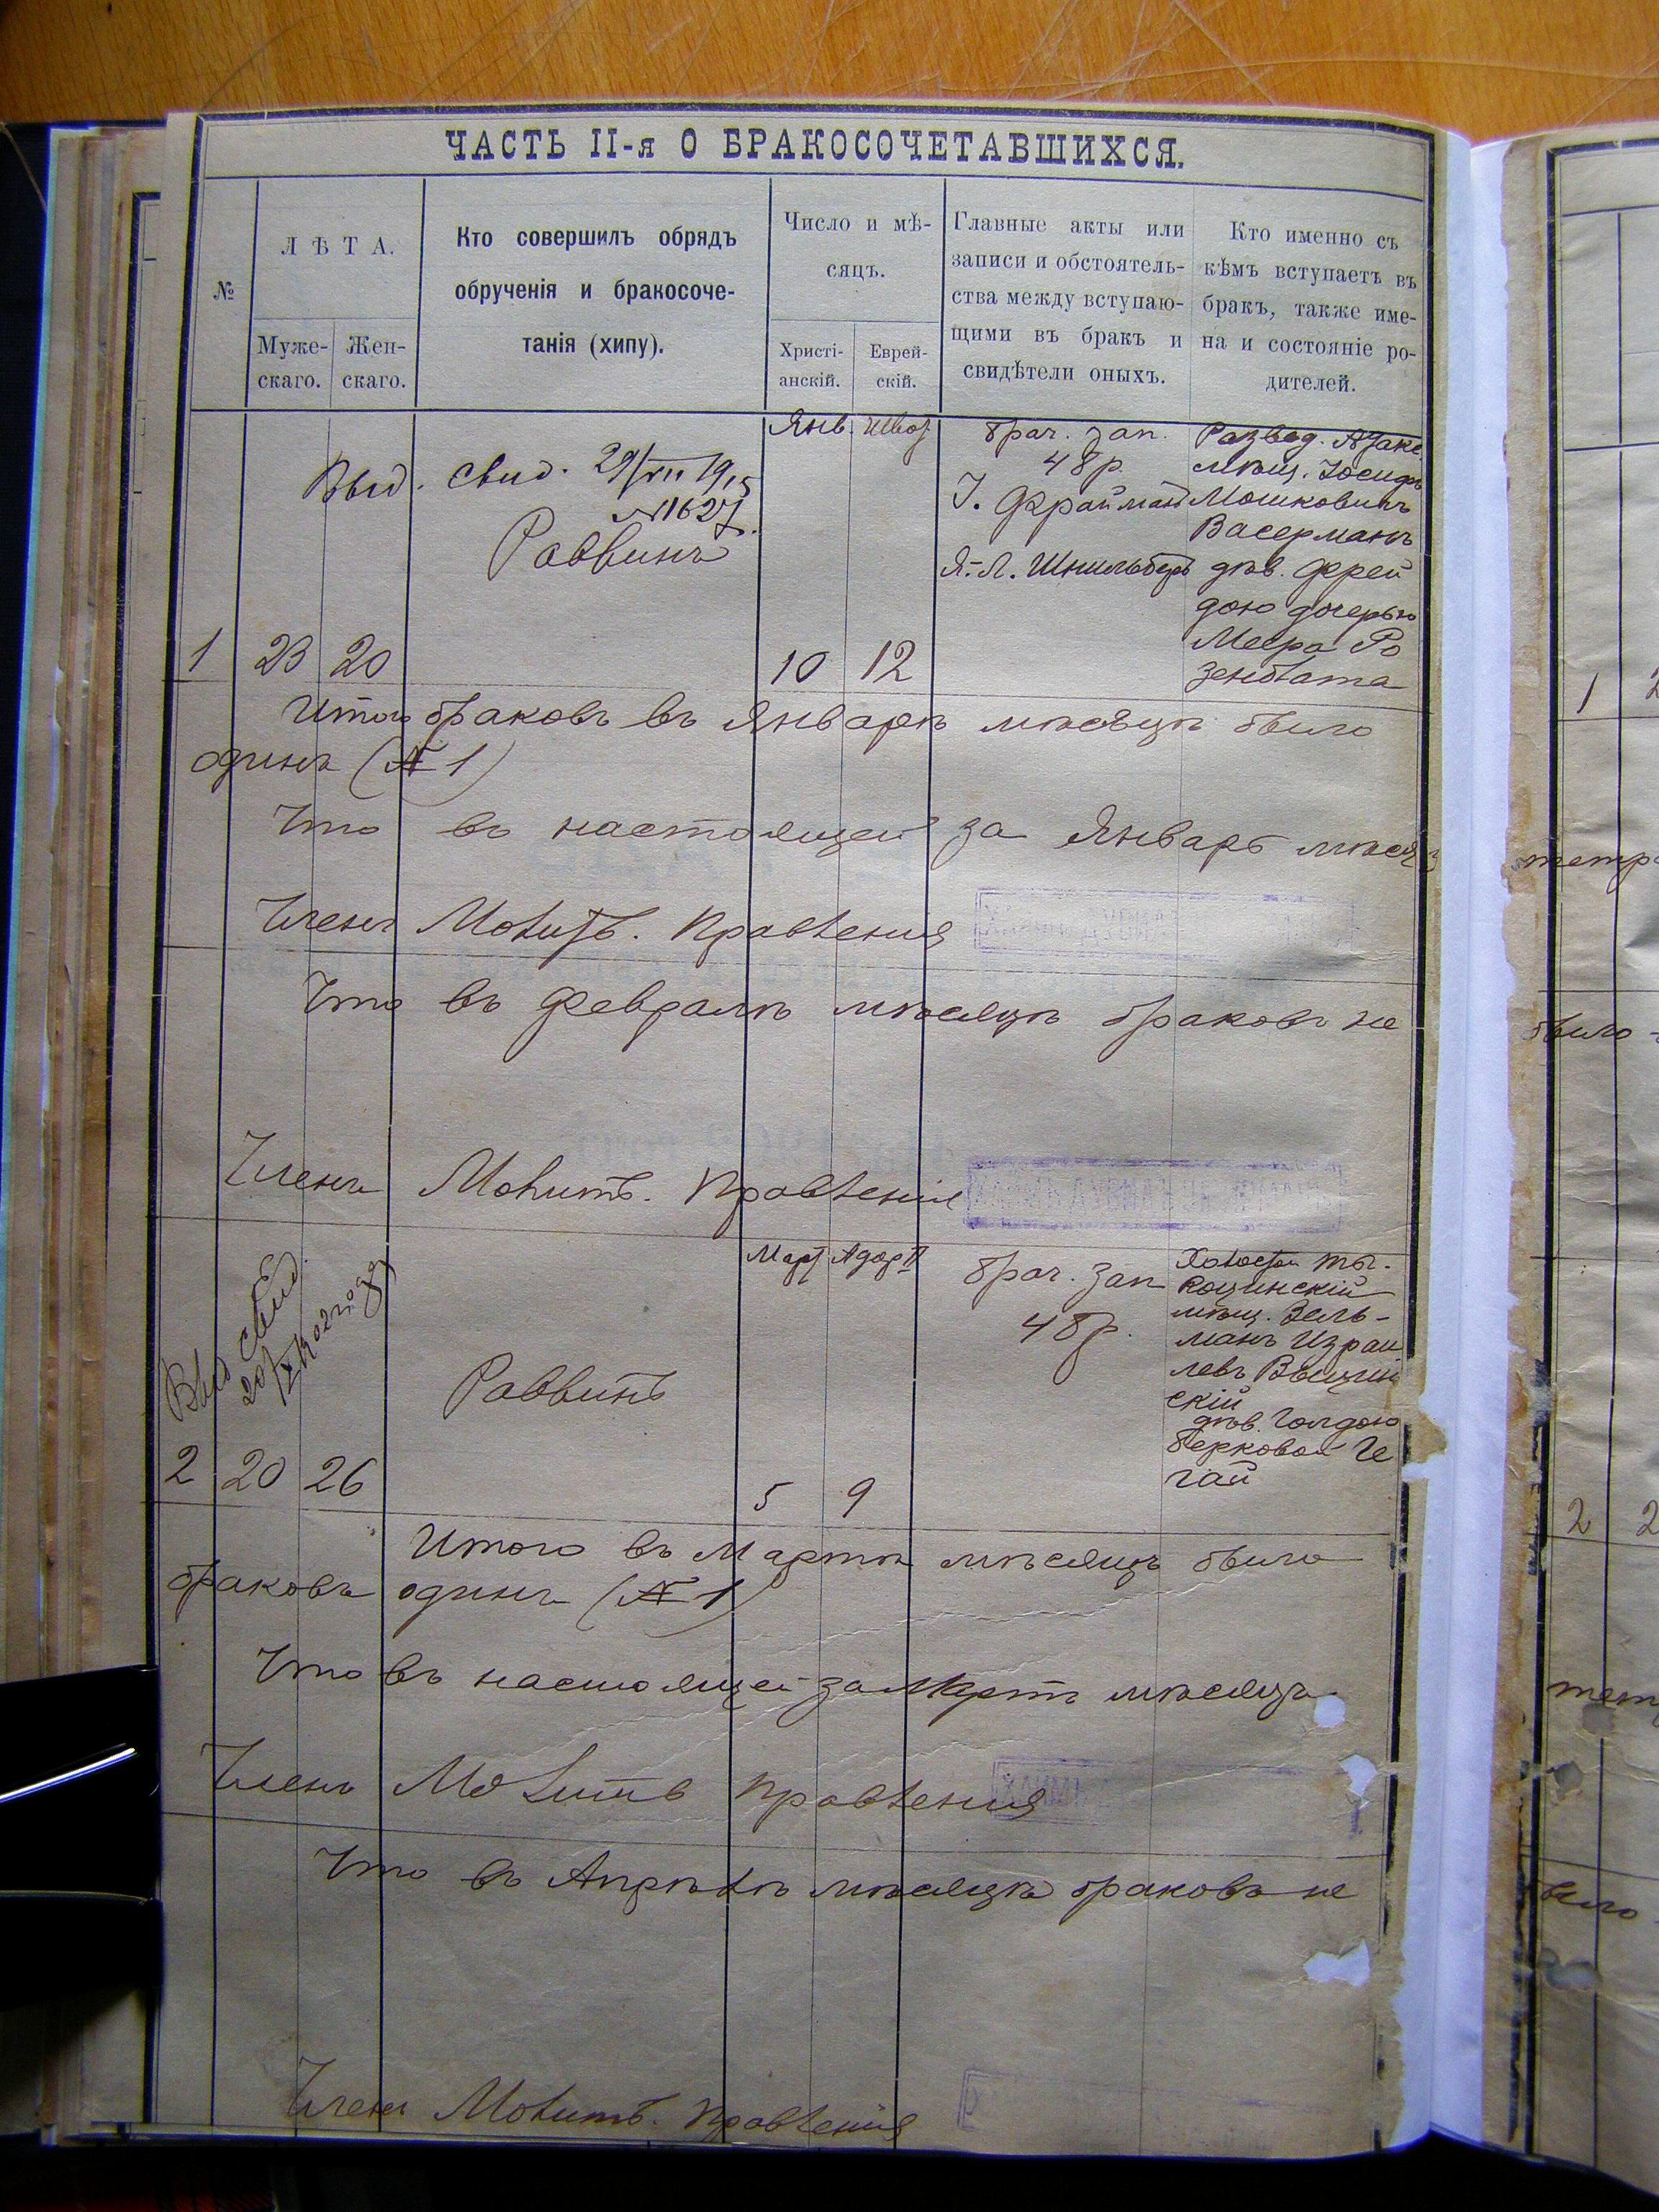 ЧАСТЬ II-я О БРАКОСОЧЕТАВШИХСЯ.
№
ЛѢТА.
Муже-
скаго.
Жен-
скаго.
Кто совершилъ обрядъ
обрученія и бракосоче-
танія (хипу).
Число и мѣ-
сяцъ.
Христі-
анскій.
Еврей-
скій.
Главные акты или
записи и обстоятель-
ства между вступаю-
щими въ бракъ и
свидѣтели оныхъ.
Кто именно съ
кѣмъ вступаетъ въ
бракъ, также име-
на и состояніе ро-
дителей.
1
23
20
Выд. свид. 29/VII 1915
№1627.
Раввинъ
Янв.
10
Шват
12
брач. зап.
48 р.
І. Фрайман
Я.-Л. Шпильберг
Развед.
мѣщ. Іосифъ
Мошковичъ
Васерманъ
дѣв. Фрей
дою дочерью
Меера Ро
зенблата
Итого браковъ въ Январѣ мѣсяцѣ было
одинъ (№ 1)
Что въ настоящей за Январь мѣсяц
Членъ Молитв. Правленія
Что въ Февралѣ мѣсяцѣ браковъ не
Членъ Молитв. Правленія
Выд свид.
20/IX 1902 года
2
20
26
Раввинъ
Март
5
Адар II
9
брач. зап
48 р.
Холостой Ты-
коцинскій
мѣщ. Зель-
манъ Израи
левъ
скій
дѣв. Голдою
Берковой Че
чай
Итого въ Мартѣ мѣсяцѣ было
браковъ одинъ (№ 1)
Что въ настоящей за Мартъ мѣсяцъ
Членъ Молитв Правленія
Что въ Апрѣлѣ мѣсяцѣ браковъ не
Членъ Молитв. Правленія
1
2
тетра
было
2
2
тет
было